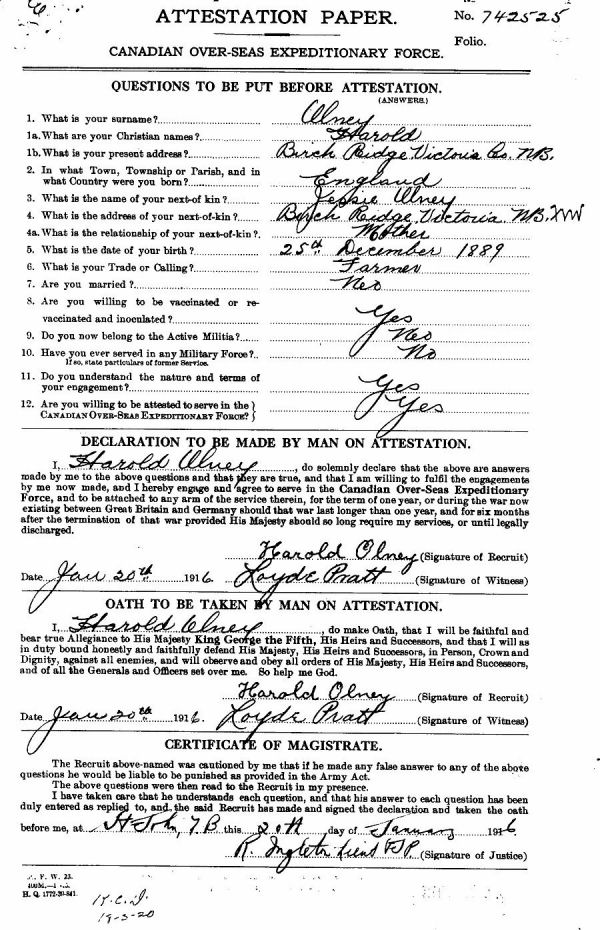 ATTESTATION PAPER.
No. 742525
Folio.
CANADIAN OVER-SEAS EXPEDITIONARY FORCE.
QUESTIONS TO BE PUT BEFORE ATTESTATION.
(ANSWERS.)
1. What is your surname? Olney
1a. What are your Christian names? Harold
1b. What is your present address? Birch Ridge Victoria Co. NB.
2. In what Town, Township or Parish, and in
what Country were you born? England
3. What is the name of your next-of kin? Jessie Olney
4. What is the address of your next-of-kin? Birch Ridge, Victoria. NB.
4a. What is the relationship of your next-of-kin? Mother
5. What is the date of your birth? 25th December 1889
6. What is your Trade or Calling? Farmer
7. Are you married? No
8. Are you willing to be vaccinated or re-
vaccinated and inoculated? Yes
9. Do you now belong to the Active Militia? No
10. Have you ever served in any Military Force? No
If so, state particulars of former Service.
11. Do you understand the nature and terms of
your engagement? Yes
12. Are you willing to be attested to serve in the
CANADIAN OVER-SEAS EXPEDITIONARY FORCE? } Yes
DECLARATION TO BE MADE BY MAN ON ATTESTATION.
I, Harold Olney, do solemnly declare that the above are answers
made by me to the above questions and that they are true, and that I am willing to fulfil the engagements
by me now made, and I hereby engage and agree to serve in the Canadian Over-Seas Expeditionary
Force, and to be attached to any arm of the service therein, for the term of one year, or during the war now
existing between Great Britain and Germany should that war last longer than one year, and for six months
after the termination of that war provided His Majesty should so long require my services, or until legally
discharged.
Harold Olney (Signature of Recruit)
Date Jan 20th 1916 Loyde Pratt (Signature of Witness)
OATH TO BE TAKEN BY MAN ON ATTESTATION.
I, Harold Olney, do make Oath, that I will be faithful and
bear true Allegiance to His Majesty King George the Fifth, His Heirs and Successors, and that I will as
in duty bound honestly and faithfully defend His Majesty, His Heirs and Successors, in Person, Crown and
Dignity, against all enemies, and will observe and obey all orders of His Majesty, His Heirs and Successors,
and of all the Generals and Officers set over me. So help me God.
Harold Olney (Signature of Recruit)
Date Jan 20th 1916. Loyde Pratt (Signature of Witness)
CERTIFICATE OF MAGISTRATE.
The Recruit above-named was cautioned by me that if he made any false answer to any of the above
questions he would be liable to be punished as provided in the Army Act.
The above questions were then read to the Recruit in my presence.
I have taken care that he understands each question, and that his answer to each question has been
duly entered as replied to, and the said Recruit has made and signed the declaration and taken the oath
before me, at St John, B this 20th day of January 1916
R. Lieut JP. (Signature of Justice)
F. W. 23.
H. Q. 1772-39-841.
19-3-20